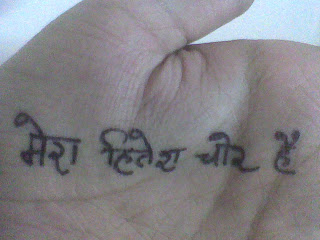 मेरा हितेश चोर है